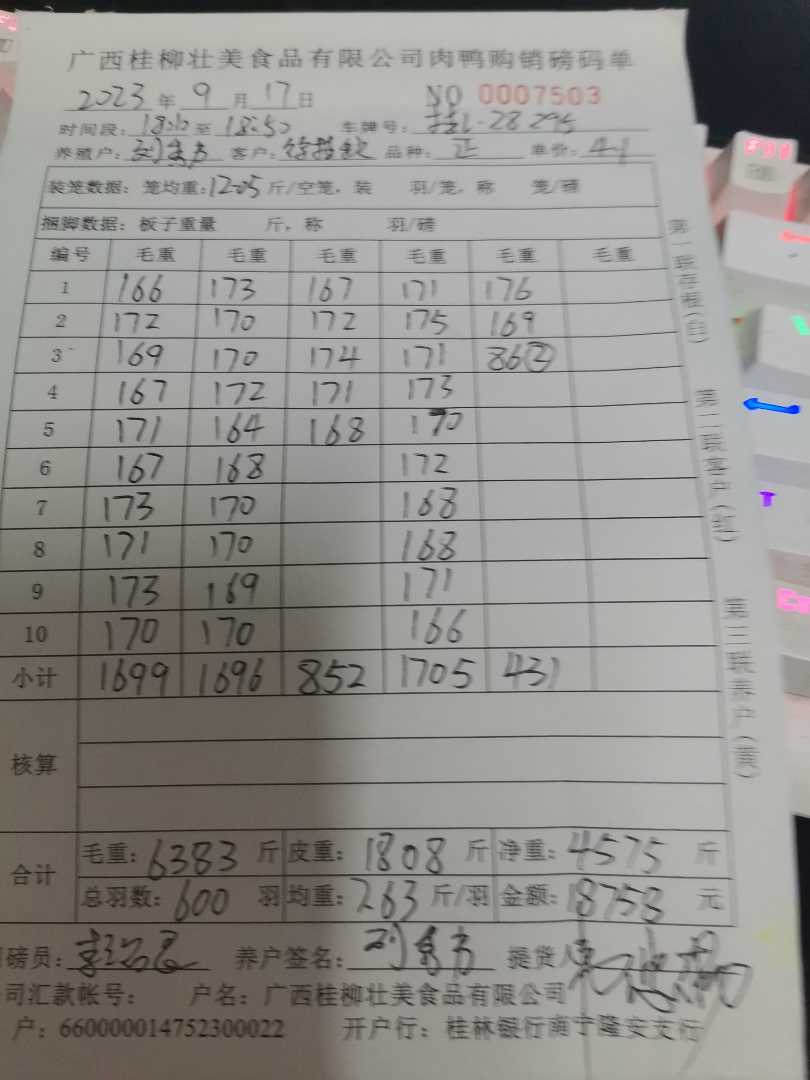 广西桂柳壮美食品有限公司肉鸭购销磅码单
2023年9月17日 NO 0007503
时间段: 至18:50 车牌号: 28295
养殖户: 客户: 品种:正 单价:4.1
装笼数据: 笼均重:12.05斤/空笼, 装 羽/笼, 称 笼/磅
捆脚数据: 板子重量 斤, 称 羽/磅
编号 毛重 毛重 毛重 毛重 毛重 毛重
1 166 173 167 171 176
2 172 170 172 175 169
3 169 170 174 171 86②
4 167 172 171 173
5 171 164 168 170
6 167 168 172
7 173 170 168
8 171 170 168
9 173 169 171
10 170 170 166
小计 1699 1696 852 1705 431
核算
合计 毛重:6383斤 皮重:1808斤 净重:4575斤
总羽数:600羽 均重:7.63斤/羽 金额:18758元
磅员: 养户签名: 提货
司汇款帐号: 户名:广西桂柳壮美食品有限公司
户:660000014752300022 开户行:桂林银行南宁隆安支行
第一联存根(白)
第二联客户(红)
第三联养户(黄)